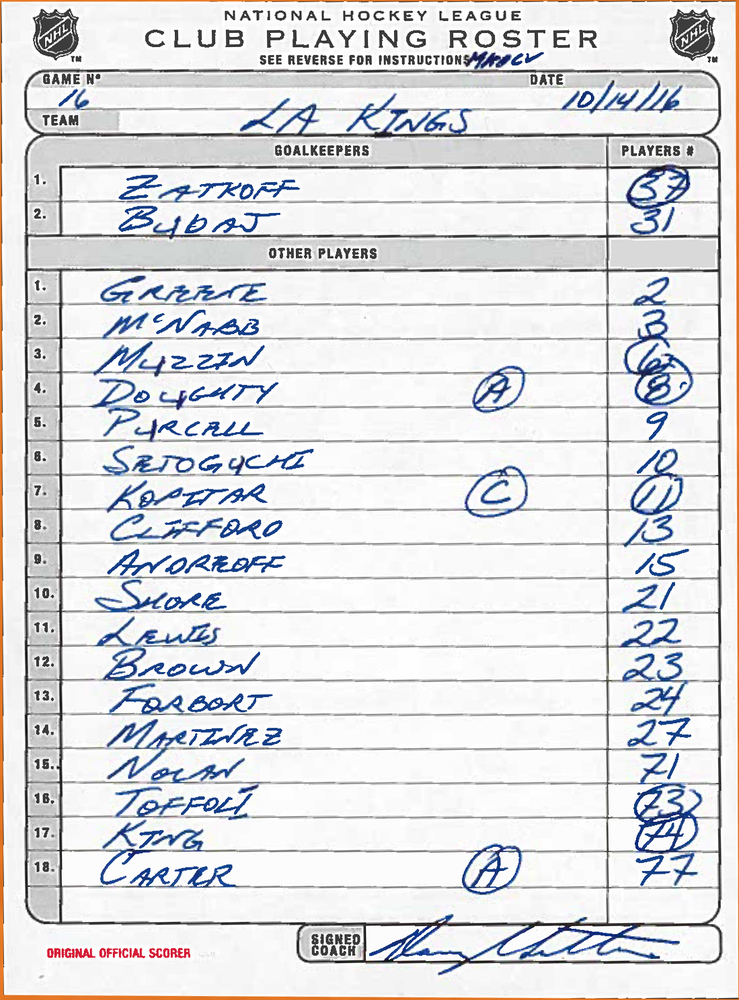 NATIONAL HOCKEY LEAGUE
NHL CLUB PLAYING ROSTER NHL
TM SEE REVERSE FOR INSTRUCTIONS TM
GAME Nº DATE
16 10/14/16
TEAM LA KINGS
GOALKEEPERS PLAYERS #
1. ZATKOFF 37
2. BUDAJ 31
OTHER PLAYERS
1. GREENE 2
2. McNABB 3
3. MUZZIN 6
4. DOUGHTY A 8
5. PURCELL 9
6. SETOGUCHI 10
7. KOPITAR C 11
8. CLIFFORD 13
9. ANDREOFF 15
10. SHORE 21
11. LEWIS 22
12. BROWN 23
13. FORBORT 24
14. MARTINEZ 27
15. NOLAN 71
16. TOFFOLI 73
17. KING 74
18. CARTER A 77
SIGNED
COACH
ORIGINAL OFFICIAL SCORER